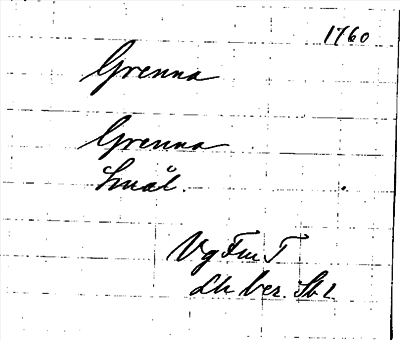 1760
Grenna
Grenna
Smål.
Vg Fm T
Lh ber. Sb 1